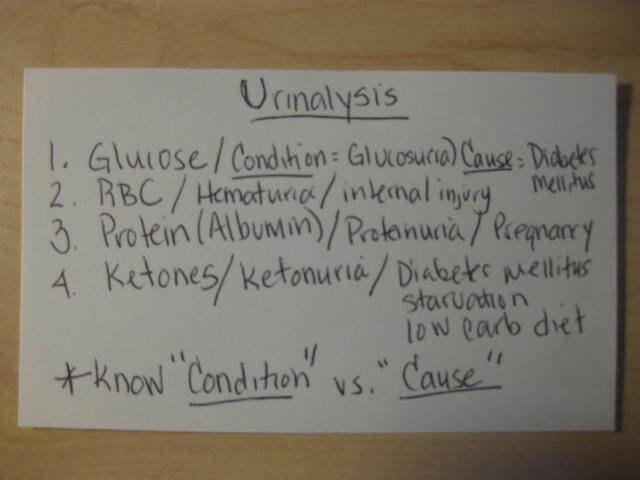 Urinalysis
1. Glucose / Condition = Glucosuria) Cause = Diabetes
mellitus
2. RBC / Hematuria / internal injury
3. Protein (Albumin) / Proteinuria / Pregnancy
4. Ketones / Ketonuria / Diabetes mellitus
starvation
low carb diet
*Know "Condition" vs. "Cause"